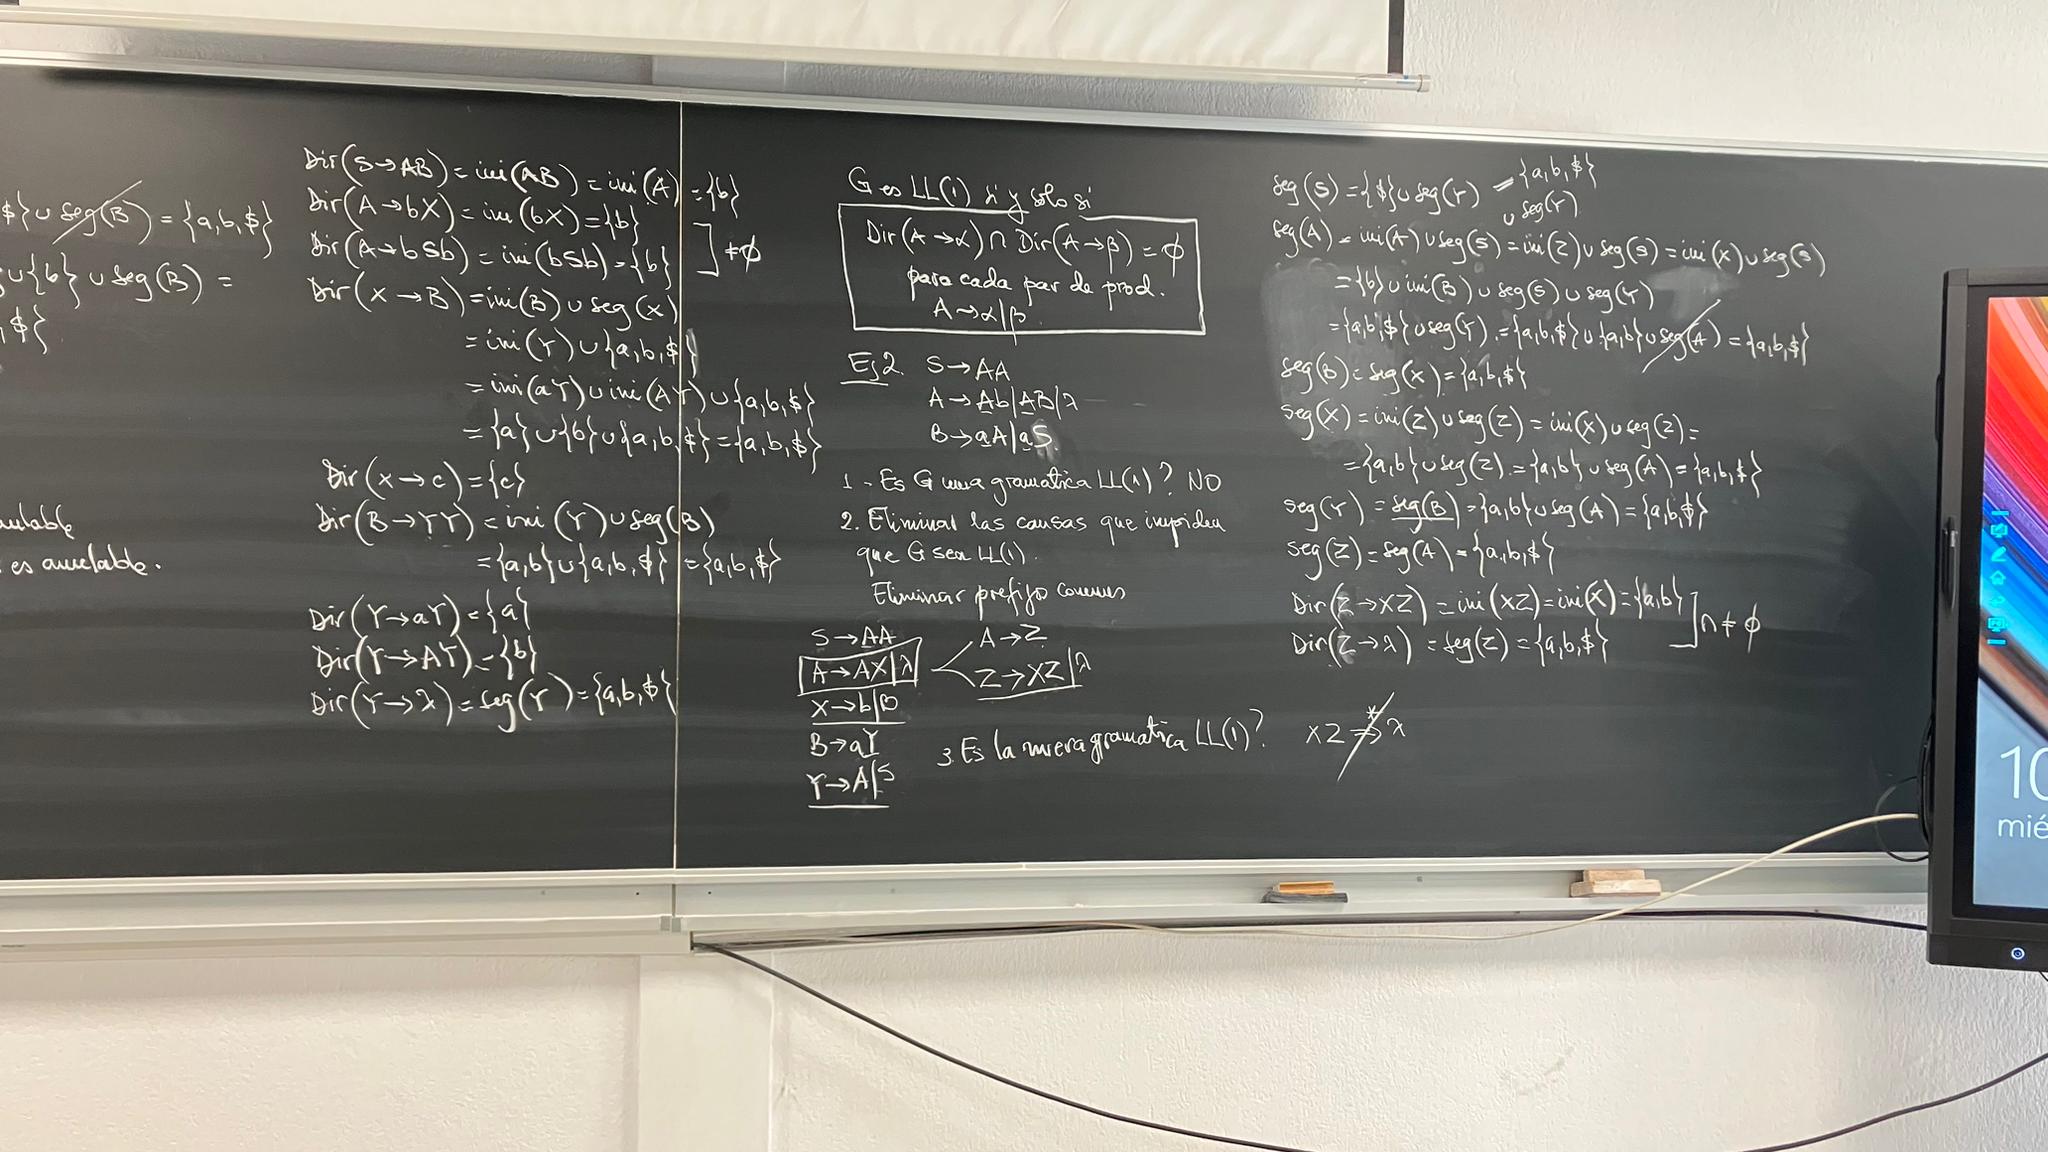 $} ∪ seg(B) = {a,b,$}
∪{b} ∪ seg(B) =
,$}
es anulable.
Dir(S→AB) = ini(AB) = ini(A) = {b}
Dir(A→bX) = ini(bX) = {b}
Dir(A→bSb) = ini(bSb) = {b} ] ≠ ϕ
Dir(X→B) = ini(B) ∪ seg(X)
= ini(Y) ∪ {a,b,$}
= ini(aY) ∪ ini(AY) ∪ {a,b,$}
= {a} ∪ {b} ∪ {a,b,$} = {a,b,$}
Dir(X→c) = {c}
Dir(B→YY) = ini(Y) ∪ seg(B)
= {a,b} ∪ {a,b,$} = {a,b,$}
Dir(Y→aY) = {a}
Dir(Y→AY) = {b}
Dir(Y→λ) = seg(Y) = {a,b,$}
G es LL(1) si y solo si
Dir(A→α) ∩ Dir(A→β) = ϕ
para cada par de prod.
A→α|β
Ej2. S→AA
A→Ab|AB|λ
B→aA|aS
1 - Es G una gramática LL(1)? NO
2. Eliminar las causas que impiden
que G sea LL(1).
Eliminar prefijo comunes
S→AA
A→AX|λ
X→b|B
B→aY
Y→A|S
A→Z
Z→XZ|λ
3. Es la nueva gramatica LL(1)?
seg(S) = {$} ∪ seg(Y) = {a,b,$}
∪ seg(Y)
seg(A) = ini(A) ∪ seg(S) = ini(Z) ∪ seg(S) = ini(X) ∪ seg(S)
= {b} ∪ ini(B) ∪ seg(S) ∪ seg(Y)
= {a,b,$} ∪ seg(Y) = {a,b,$} ∪ {a,b} ∪ seg(A) = {a,b,$}
seg(B) = seg(X) = {a,b,$}
seg(X) = ini(Z) ∪ seg(Z) = ini(X) ∪ seg(Z) =
= {a,b} ∪ seg(Z) = {a,b} ∪ seg(A) = {a,b,$}
seg(Y) = seg(B) = {a,b} ∪ seg(A) = {a,b,$}
seg(Z) = seg(A) = {a,b,$}
Dir(Z→XZ) = ini(XZ) = ini(X) = {a,b}
Dir(Z→λ) = seg(Z) = {a,b,$} ] ∩ ≠ ϕ
XZ ⇒* λ
10
mié